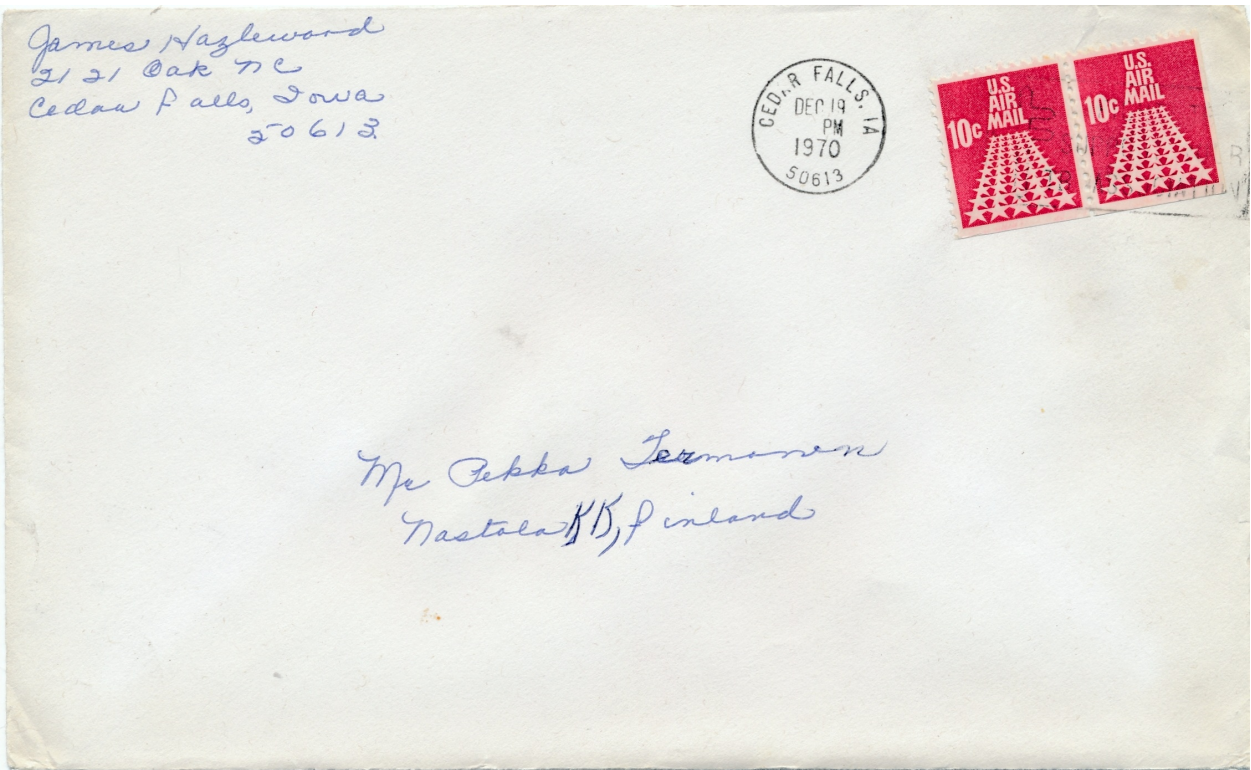 James Hazlewood
2121 Oak NC
Cedar Falls, Iowa
50613
CEDAR FALLS, IA
DEC 19
PM
1970
50613
U.S.
AIR
MAIL
10c
U.S.
AIR
MAIL
10c
Mr Pekka Termonen
Nastola KK, Finland